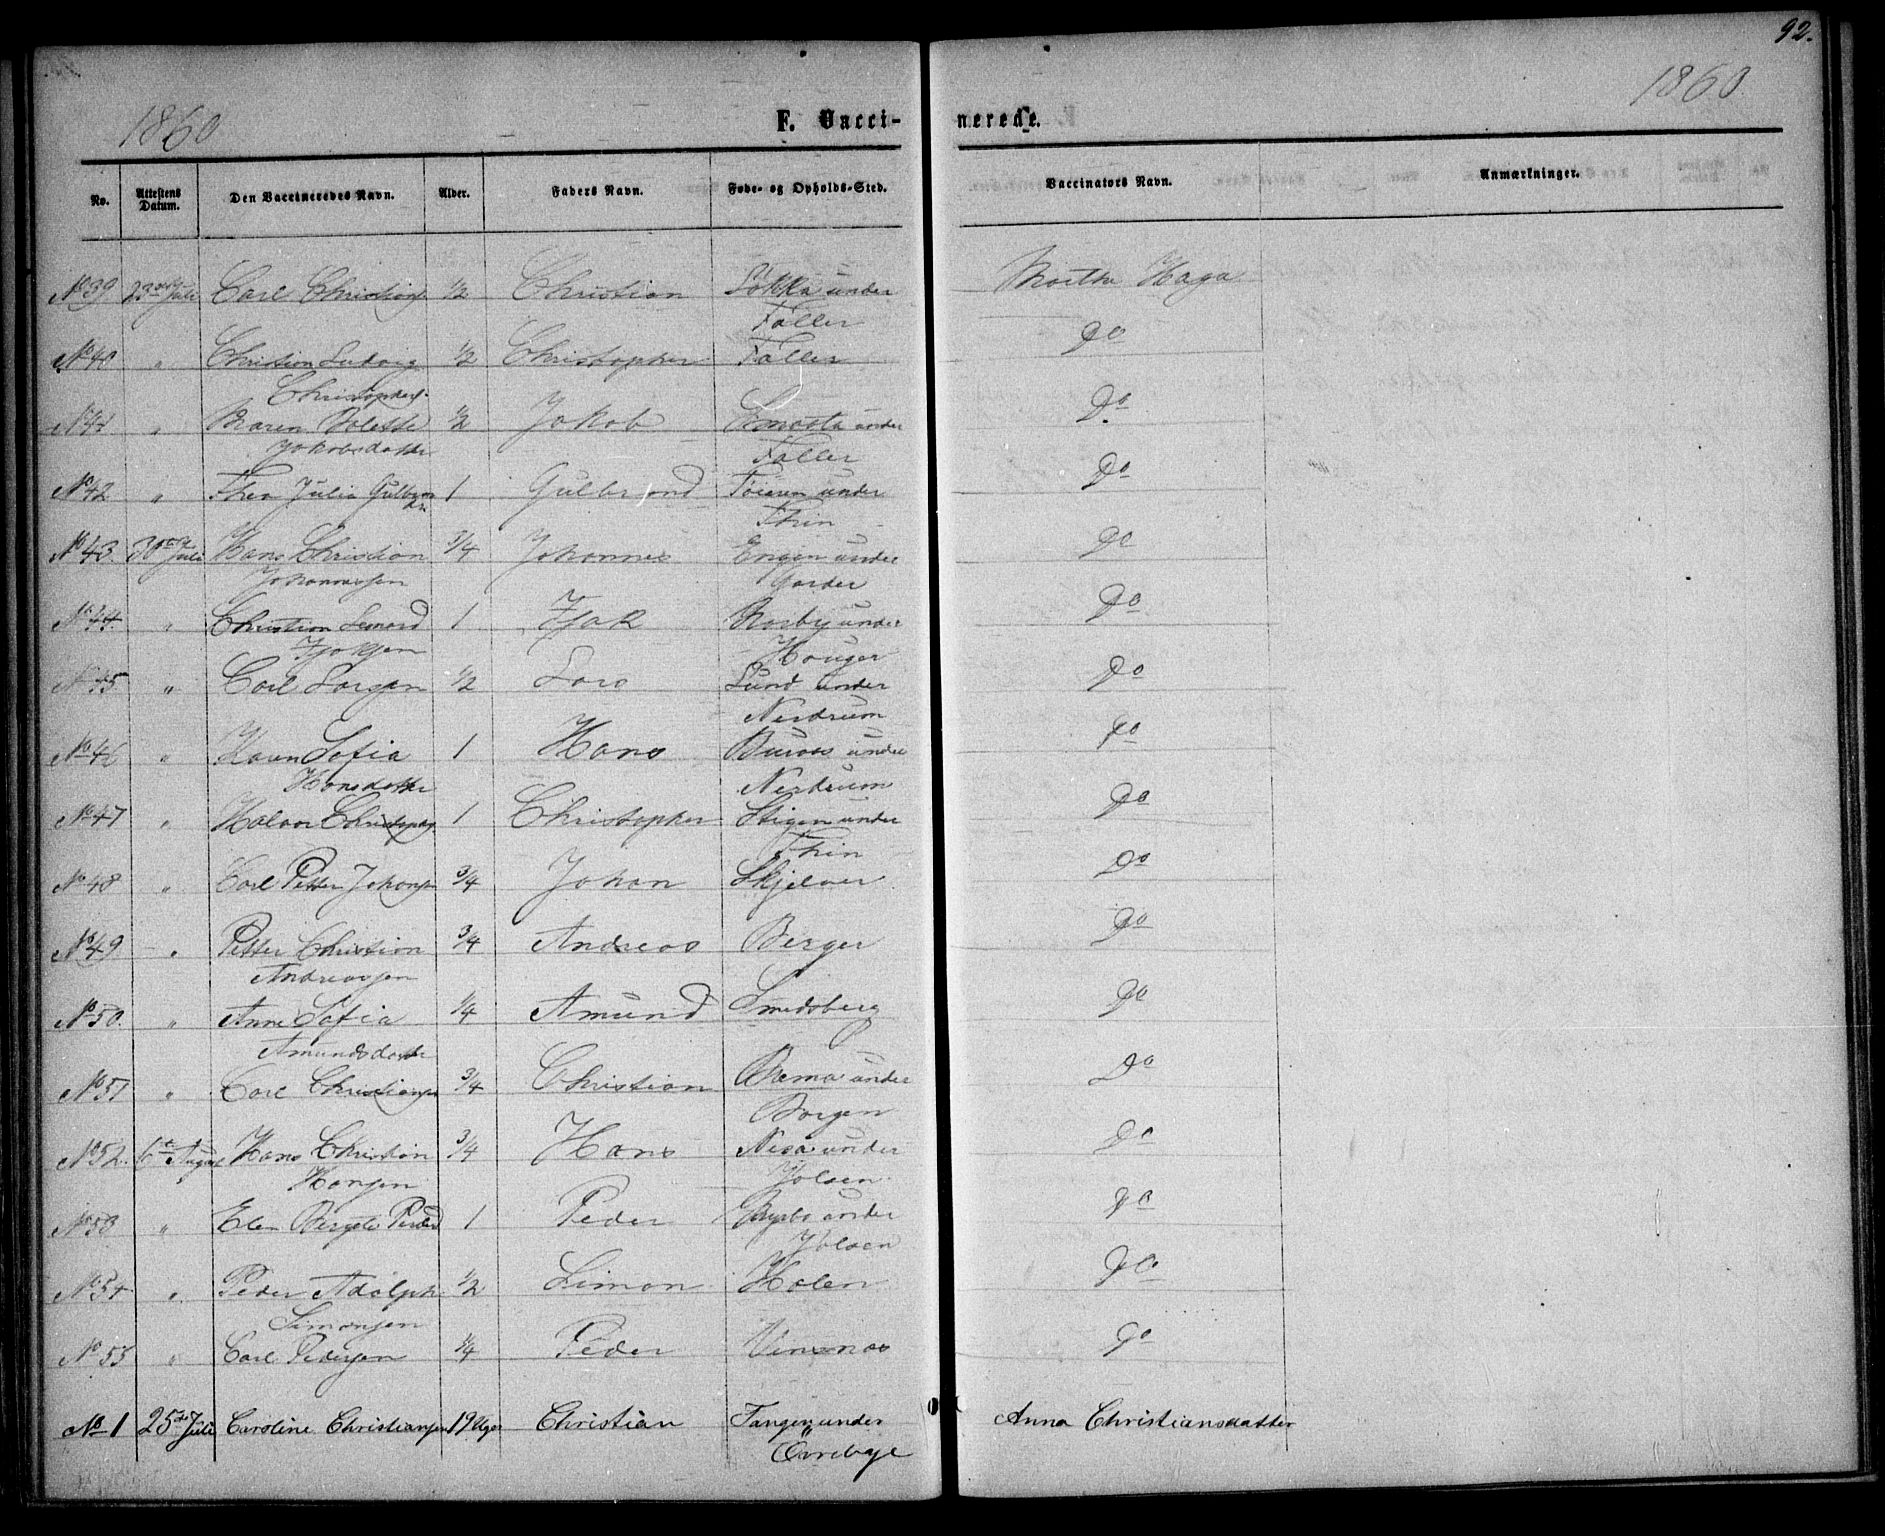 92.
1860
1860
F. Vacci-
nerede.
No. Attestens Datum. Den Vaccineredes Navn. Alder. Faders Navn. Føde- og Opholds-Sted. Vaccinators Navn. Anmærkninger.
No 39 23 Juli Carl Christians 1/2 Christian Løkka under Haga
Faller
No 40 " Christian Ludvig 1/2 Christopher Faller Do
Christophers.
No 41 " Maren Olette 1/2 Jakob under Do
Jakobsdatter Faller
No 42 " Thea Julia 1 Gulbrand under Do
Thin
No 43. 30 Juli Hans Christian 3/4 Johannes Engen under Do
Johannesen Garder
No 44. " Christian 1 Isak under Do
Hauger
No 45 " Carl Larsen 1/2 Lars Lund under Do
Nerdrum
No 46 " Karen Sofia 1 Hans Buraas under Do
Hansdatter Nerdrum
No 47 " Halvor 1 Christopher Stigen under Do
Thin
No 48 " Carl Petter Johansen 3/4 Johan Skjelver Do
No 49 " Petter Christian 3/4 Andreas Berger Do
Andreassen
No 50. " Anne Sofia 1/4 Amund Smedsberg Do
Amundsdatter
No 51 " Carl Christiansen 3/4 Christian under Do
Borgen
No 52. 6te August Hans Christian 3/4 Hans under Do
Hansen Jølsen
No 53 " 1 Peder under Do
Jølsen
No 54 " Peder Adolph 1/2 Simon Holen Do
Simonsen
No 55 " Carl Pedersen 1/4 Peder Do
No 1 25de Juli Caroline Christiansen 19 Uger Christian Tangen under Anna Christiansdatter
Övrebye